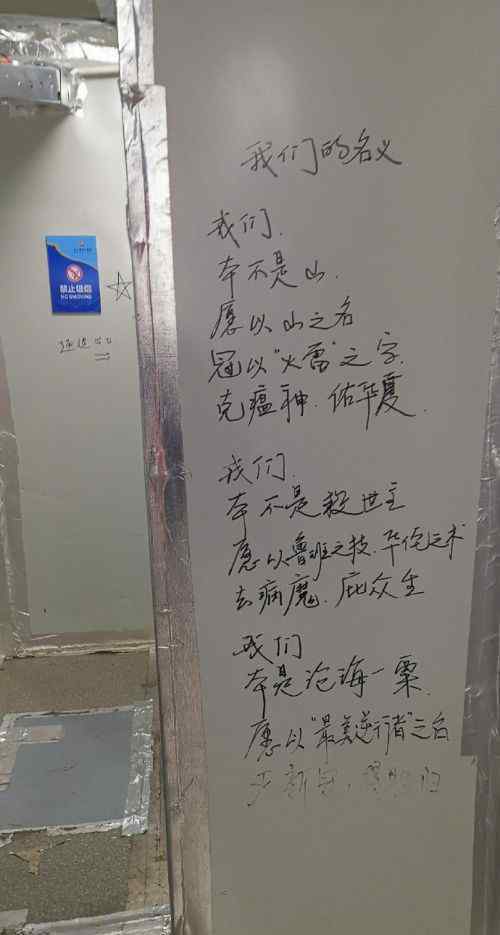 我们的名义
我们.
本不是山.
愿以山之名
冠以"火雷"之字.
克瘟神.佑华夏.
我们.
本不是救世主
愿以鲁班之技.华佗之术
去病魔.庇众生
我们
本是沧海一粟.
愿以"最美逆行者"之名
禁止吸烟
NO SMOKING